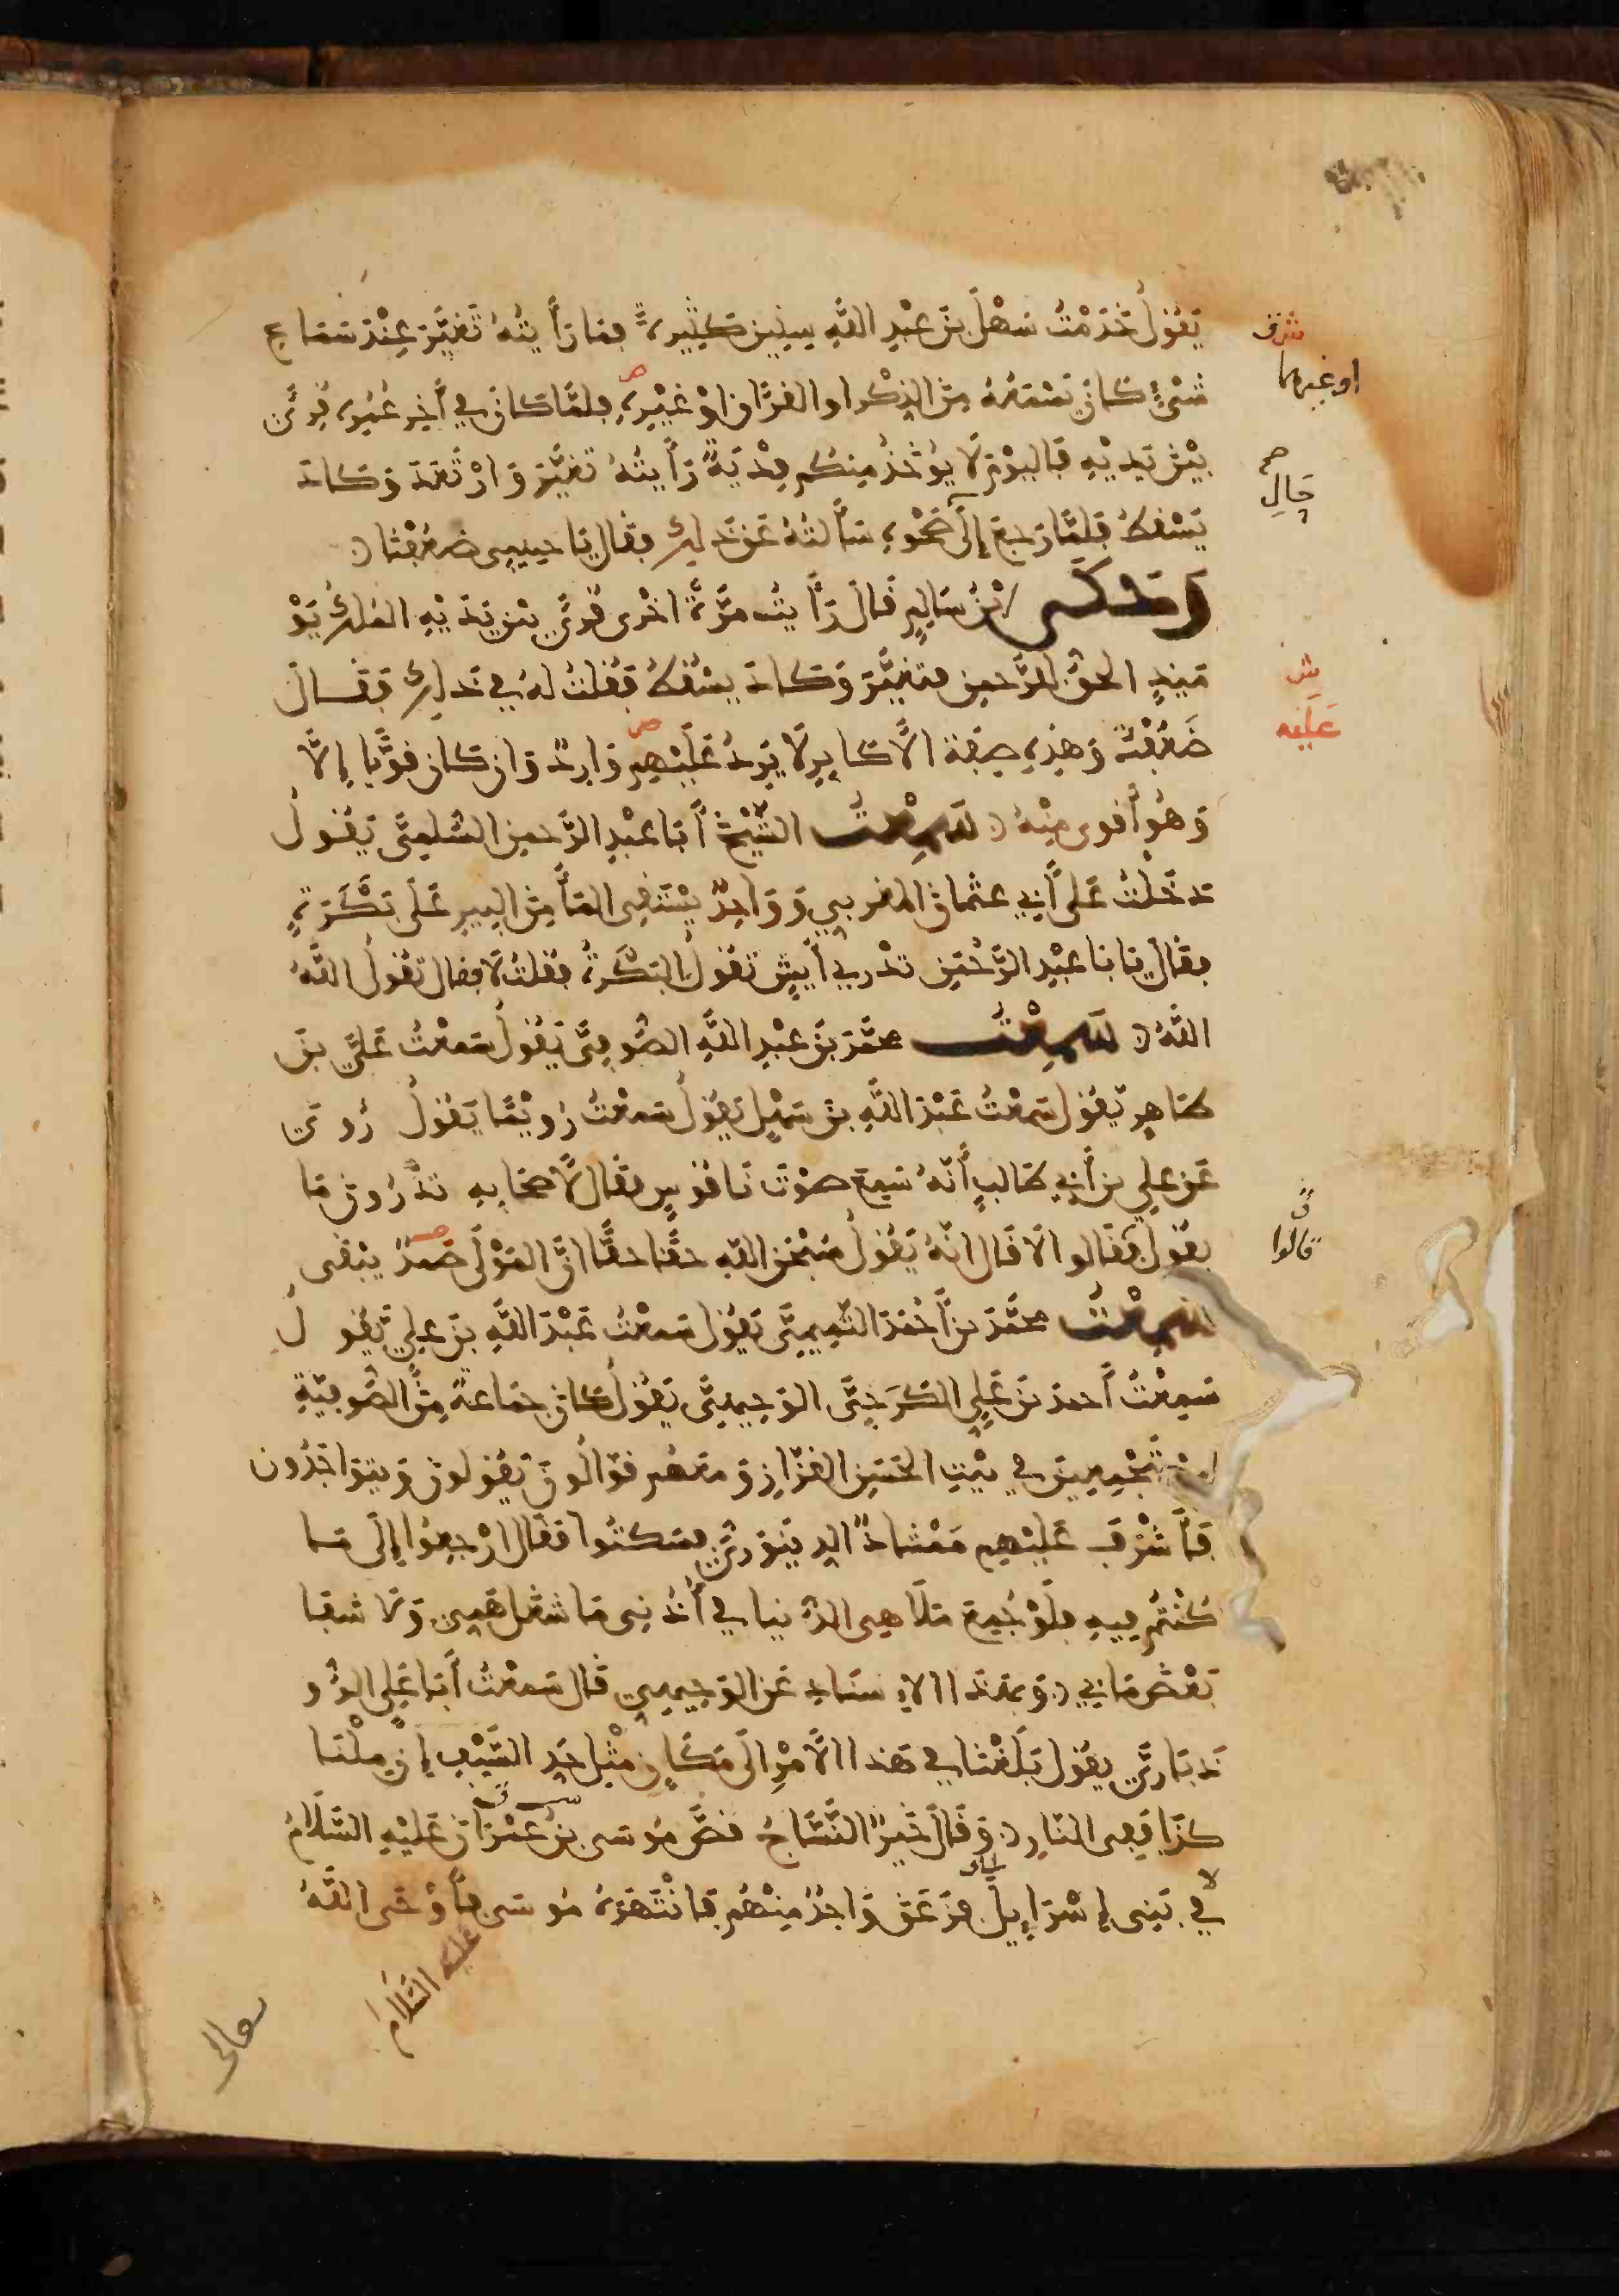 يَقُولُ خَدَمْتُ سَهْلَ بنَ عَبْدِ اللَّهِ سِنِينَ كَثِيرَةً فمَا رَأَيتُهُ تَغَيَّرَ عِنْدَ سَمَاع
شَىْءٍ كَانَ يَسْمَعُهُ مِنَ الذِّكْرِ او القُرْءَانِ اوْ غَيْرِهِ فلمَّا كانَ في ءَاخِرِ عُمُرِهِ قُرِئَ
بيْنَ يَدَيْهِ فَاليَوْمَ لَا يُوخَذُ مِنكُم فِدْيَةٌ رَأَيتُهُ تَغَيَّرَ وَارْتَعَدَ وَكَادَ
يَسْقُطُ فلمَّا رَجَعَ إِلَى صَحْوِهِ سَأَلتُهُ عَن ذَلِكَ فقَال يَا حبيبِى ضَعُفْنَا
وَحَكَى ابْنُ سَالِمٍ قَالَ رَأَيتُه مَرَّةً اخْرى قُرِئَ بيْنَ يَدَيْهِ المُلكُ يَوْ
مَئِذٍ الحَقُّ للرَّحمنِ فتَغَيَّرَ وَكَادَ يسْقُطُ فقُلتُ لهُ في ذَلِكَ فقَالَ
ضَعُفْتُ وَهَذِهِ صِفَة الأَكَابِرِ لَا يَرِدُ عَلَيْهِم وَارِدٌ وَان كان قَوِيًّا إِلَّا
وَهُو أَقوى مِنْهُ سَمِعْتُ الشَّيْخَ أَبَا عَبْدِ الرَّحمنِ السُّلَمِيَّ يَقُولُ
دَخَلْتُ عَلَى أَبِي عثمَانَ المغربي وَوَاحِدٌ يسْتَقِى المَآءَ مِنَ البِيرِ عَلَى بَكَرَةٍ
فقَالَ يَابَا عبْدِ الرَّحْمَنِ تدْرِي أَيشٍ تَقُولُ البَكَرَةُ فقُلتُ لَا فقال تَقُولُ اللَّهُ
اللَّهُ سَمِعْتُ محمَّدَ بنَ عبْدِ اللَّهِ الصُّوفِيَّ يَقُولُ سَمِعْتُ عَلِيَّ بنَ
طَاهِرٍ يَقُولُ سَمِعْتُ عَبْدَ اللَّهِ بنَ سَهْلٍ يَقُولُ سَمِعْتُ رُوَيْمًا يَقُولُ رُوِىَ
عَن علي بن أَبي طَالبٍ أَنَّهُ سَمِعَ صَوْتَ نَاقُوسٍ فقَال لِأَصْحَابِهِ تَدْرُونَ مَا
يقُولُ فَقَالوا لَا قَال انَّهُ يَقُولُ سُبْحَنَ اللَّهِ حَقًّا حَقًّا انَّ المَوْلَى صَمَدٌ يَبْقَى
سَمِعْتُ محمَّدَ بنَ أَحْمَدَ التَّمِيمِيَّ يَقُولُ سَمِعْتُ عَبْدَ اللَّهِ بنَ عليّ يَقُولُ
سَمِعْتُ أَحمدَ بنَ عَلِيٍّ الكَرَجِيَّ الوَجِيهِيَّ يَقُولُ كَانَ جمَاعَةٌ مِنَ الصُّوفِيَّةِ
مُجْتَمِعِينَ في بَيْتِ الحَسَنِ القَزَّازِ وَمَعَهُم قوَّالُونَ يَقُولونَ وَيتوَاجَدُون
فَأَشْرَفَ عَلَيْهِم مَمْشَاذٌ الدِّينَوَرِيُّ فسَكَتُوا فقَال ارْجِعُوا إِلَى مَا
كُنْتُم فِيهِ فلَوْ جُمِعَ مَلَاهِى الدُّنيَا في أُذُنِى مَا شَغَلَ هَمِّى وَلا شَفَا
بَعْضَ مَا بِي وَبهَذَا الإسنَادِ عَن الوَجِيهِيّ قَال سَمِعْتُ أَبَا عَلِيٍّ الرُّو
ذَبَارِيَّ يقُول بَلَغْنَا في هَذَا الأَمْرِ الَى مَكَانٍ مِثْلِ حَدِّ السَّيْفِ إِنْ مِلْنَا
كَذَا فَفِى النَّارِ وَقَالَ خَيْرٌ النَّسَّاجُ قصَّ مُوسَى بنُ عِمْرَانَ عَلَيْهِ السَّلَامُ
في بَنِى إِسْرَاءِيلَ فزَعَقَ وَاحِدٌ مِنْهُم فَانْتَهَرَهُ مُوسَى فأَوْحَى اللَّهُ
عليْه السَّلَام
تعالى
او غيرهما
حَالِ
عَلَيْه
قالوا